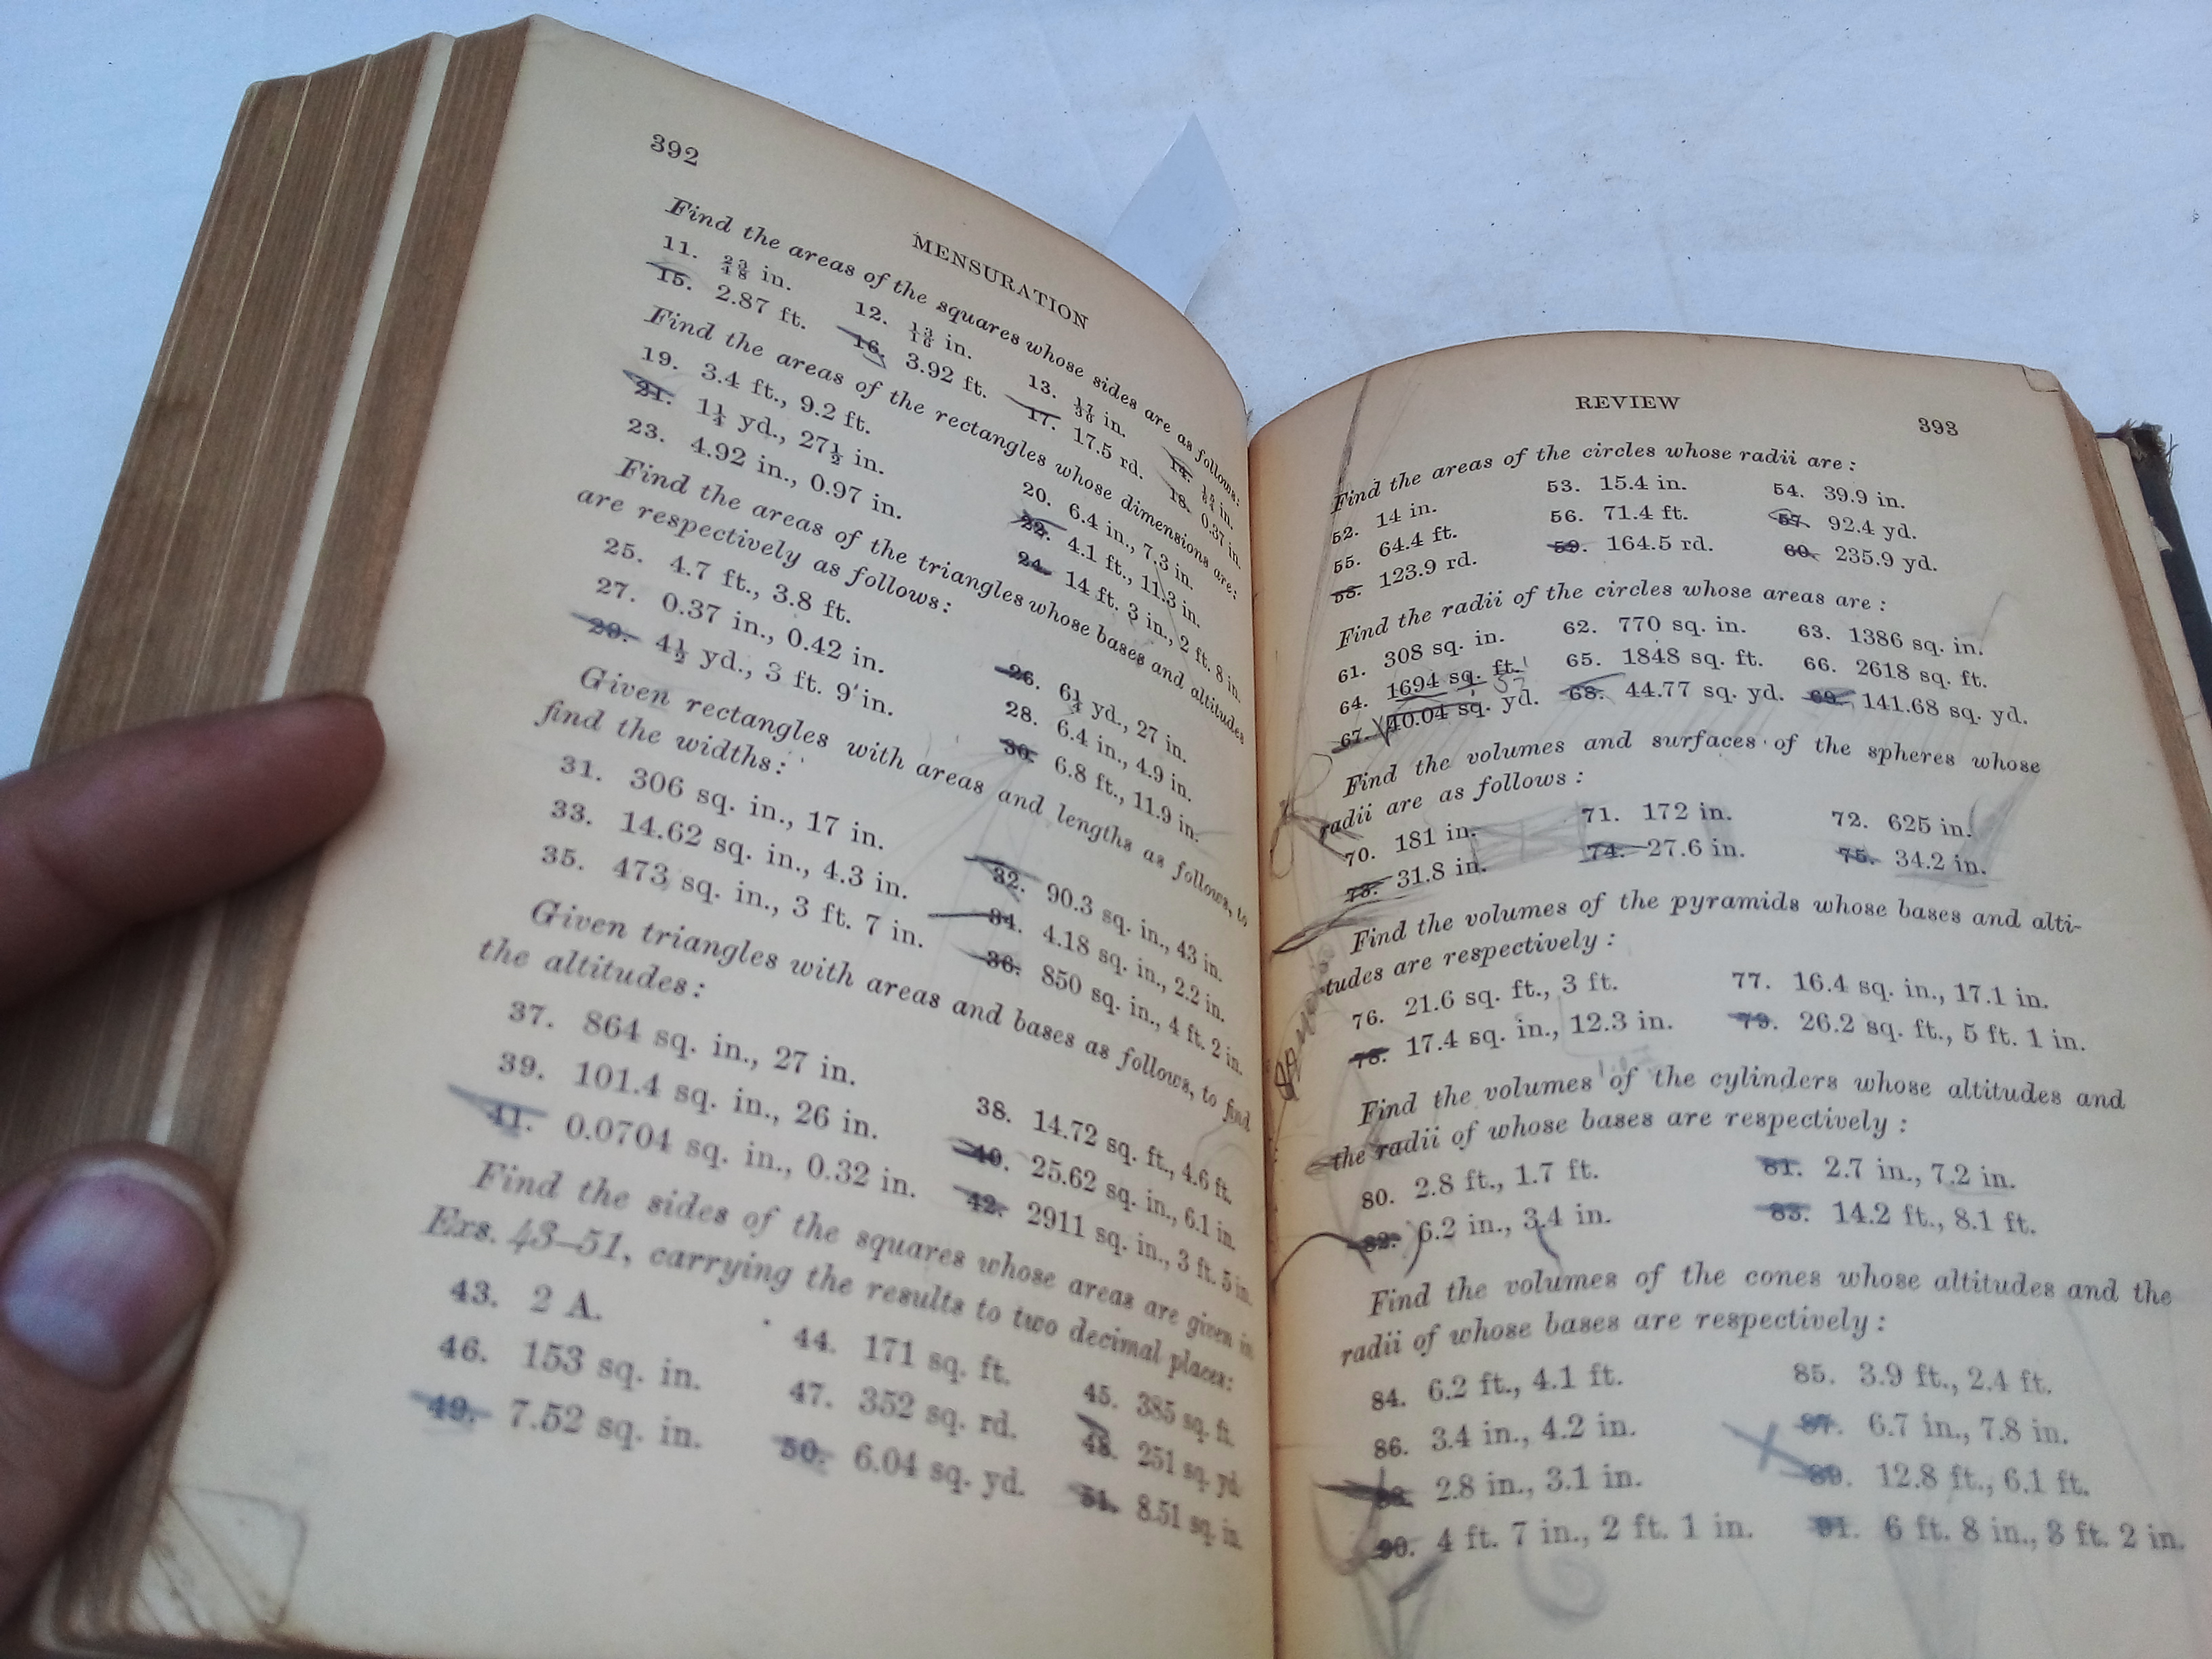 392
MENSURATION
Find the areas of the squares whose sides are as follows:
11. 23/48 in. 12. 13/16 in. 13. 17/30 in. 14. in.
15. 2.87 ft. 16. 3.92 ft. 17. 17.5 rd. 18. 0.37 in.
Find the areas of the rectangles whose dimensions are:
19. 3.4 ft., 9.2 ft. 20. 6.4 in., 7.3 in.
21. 1¼ yd., 27½ in. 22. 4.1 ft., 11.3 in.
23. 4.92 in., 0.97 in. 24. 14 ft. 3 in., 2 ft. 8 in.
Find the areas of the triangles whose bases and altitudes
are respectively as follows:
25. 4.7 ft., 3.8 ft. 26. 6¼ yd., 27 in.
27. 0.37 in., 0.42 in. 28. 6.4 in., 4.9 in.
29. 4½ yd., 3 ft. 9 in. 30. 6.8 ft., 11.9 in.
Given rectangles with areas and lengths as follows, to
find the widths:
31. 306 sq. in., 17 in. 32. 90.3 sq. in., 43 in.
33. 14.62 sq. in., 4.3 in. 34. 4.18 sq. in., 2.2 in.
35. 473 sq. in., 3 ft. 7 in. 36. 850 sq. in., 4 ft. 2 in.
Given triangles with areas and bases as follows, to find
the altitudes:
37. 864 sq. in., 27 in. 38. 14.72 sq. ft., 4.6 ft.
39. 101.4 sq. in., 26 in. 40. 25.62 sq. in., 6.1 in.
41. 0.0704 sq. in., 0.32 in. 42. 2911 sq. in., 3 ft. 5 in.
Find the sides of the squares whose areas are given in
Exs. 43–51, carrying the results to two decimal places:
43. 2 A. 44. 171 sq. ft. 45. 385 sq. ft.
46. 153 sq. in. 47. 352 sq. rd. 48. 251 sq. yd.
49. 7.52 sq. in. 50. 6.04 sq. yd. 51. 8.51 sq. in.
REVIEW
393
Find the areas of the circles whose radii are:
52. 14 in. 53. 15.4 in. 54. 39.9 in.
55. 64.4 ft. 56. 71.4 ft. 57. 92.4 yd.
58. 123.9 rd. 59. 164.5 rd. 60. 235.9 yd.
Find the radii of the circles whose areas are:
61. 308 sq. in. 62. 770 sq. in. 63. 1386 sq. in.
64. 1694 sq. ft. 65. 1848 sq. ft. 66. 2618 sq. ft.
67. 40.04 sq. yd. 68. 44.77 sq. yd. 69. 141.68 sq. yd.
Find the volumes and surfaces of the spheres whose
radii are as follows:
70. 181 in. 71. 172 in. 72. 625 in.
73. 31.8 in. 74. 27.6 in. 75. 34.2 in.
Find the volumes of the pyramids whose bases and alti-
tudes are respectively:
76. 21.6 sq. ft., 3 ft. 77. 16.4 sq. in., 17.1 in.
78. 17.4 sq. in., 12.3 in. 79. 26.2 sq. ft., 5 ft. 1 in.
Find the volumes of the cylinders whose altitudes and
the radii of whose bases are respectively:
80. 2.8 ft., 1.7 ft. 81. 2.7 in., 7.2 in.
82. 6.2 in., 3.4 in. 83. 14.2 ft., 8.1 ft.
Find the volumes of the cones whose altitudes and the
radii of whose bases are respectively:
84. 6.2 ft., 4.1 ft. 85. 3.9 ft., 2.4 ft.
86. 3.4 in., 4.2 in. 87. 6.7 in., 7.8 in.
88. 2.8 in., 3.1 in. 89. 12.8 ft., 6.1 ft.
90. 4 ft. 7 in., 2 ft. 1 in. 91. 6 ft. 8 in., 3 ft. 2 in.